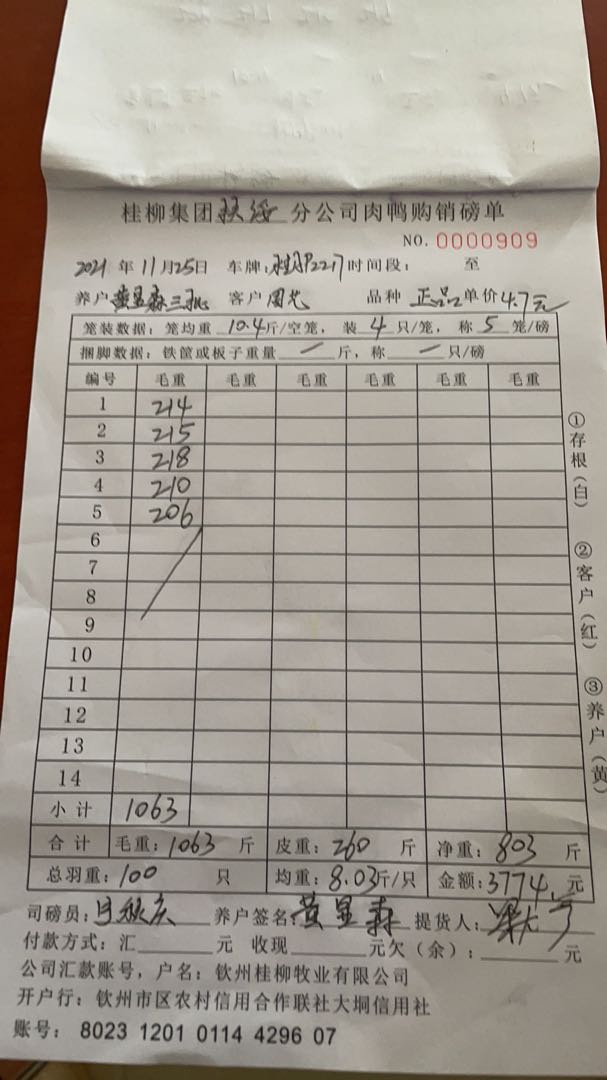 桂柳集团扶绥分公司肉鸭购销磅单
NO. 0000909
2021 年 11月25日 车牌: 2217 时间段: 至
养户 黄显森三批 客户 周芯 品种 正品 单价 4.7元
笼装数据: 笼均重 10.4 斤/空笼, 装 4 只/笼, 称 5 笼/磅
捆脚数据: 铁筐或板子重量 一 斤, 称 一 只/磅
编号 毛重 毛重 毛重 毛重 毛重 毛重
1 214
2 215
3 218
4 210
5 206
6
7
8
9
10
11
12
13
14
小计 1063
合计 毛重: 1063 斤 皮重: 260 斤 净重: 803 斤
总羽重: 100 只 均重: 8.03斤/只 金额: 3774. 元
司磅员: 养户签名: 黄显森 提货人:
付款方式: 汇 元 收现 元欠(余): 元
公司汇款账号, 户名: 钦州桂柳牧业有限公司
开户行: 钦州市区农村信用合作联社大垌信用社
账号: 8023 1201 0114 4296 07
①存根(白) ②客户(红) ③养户(黄